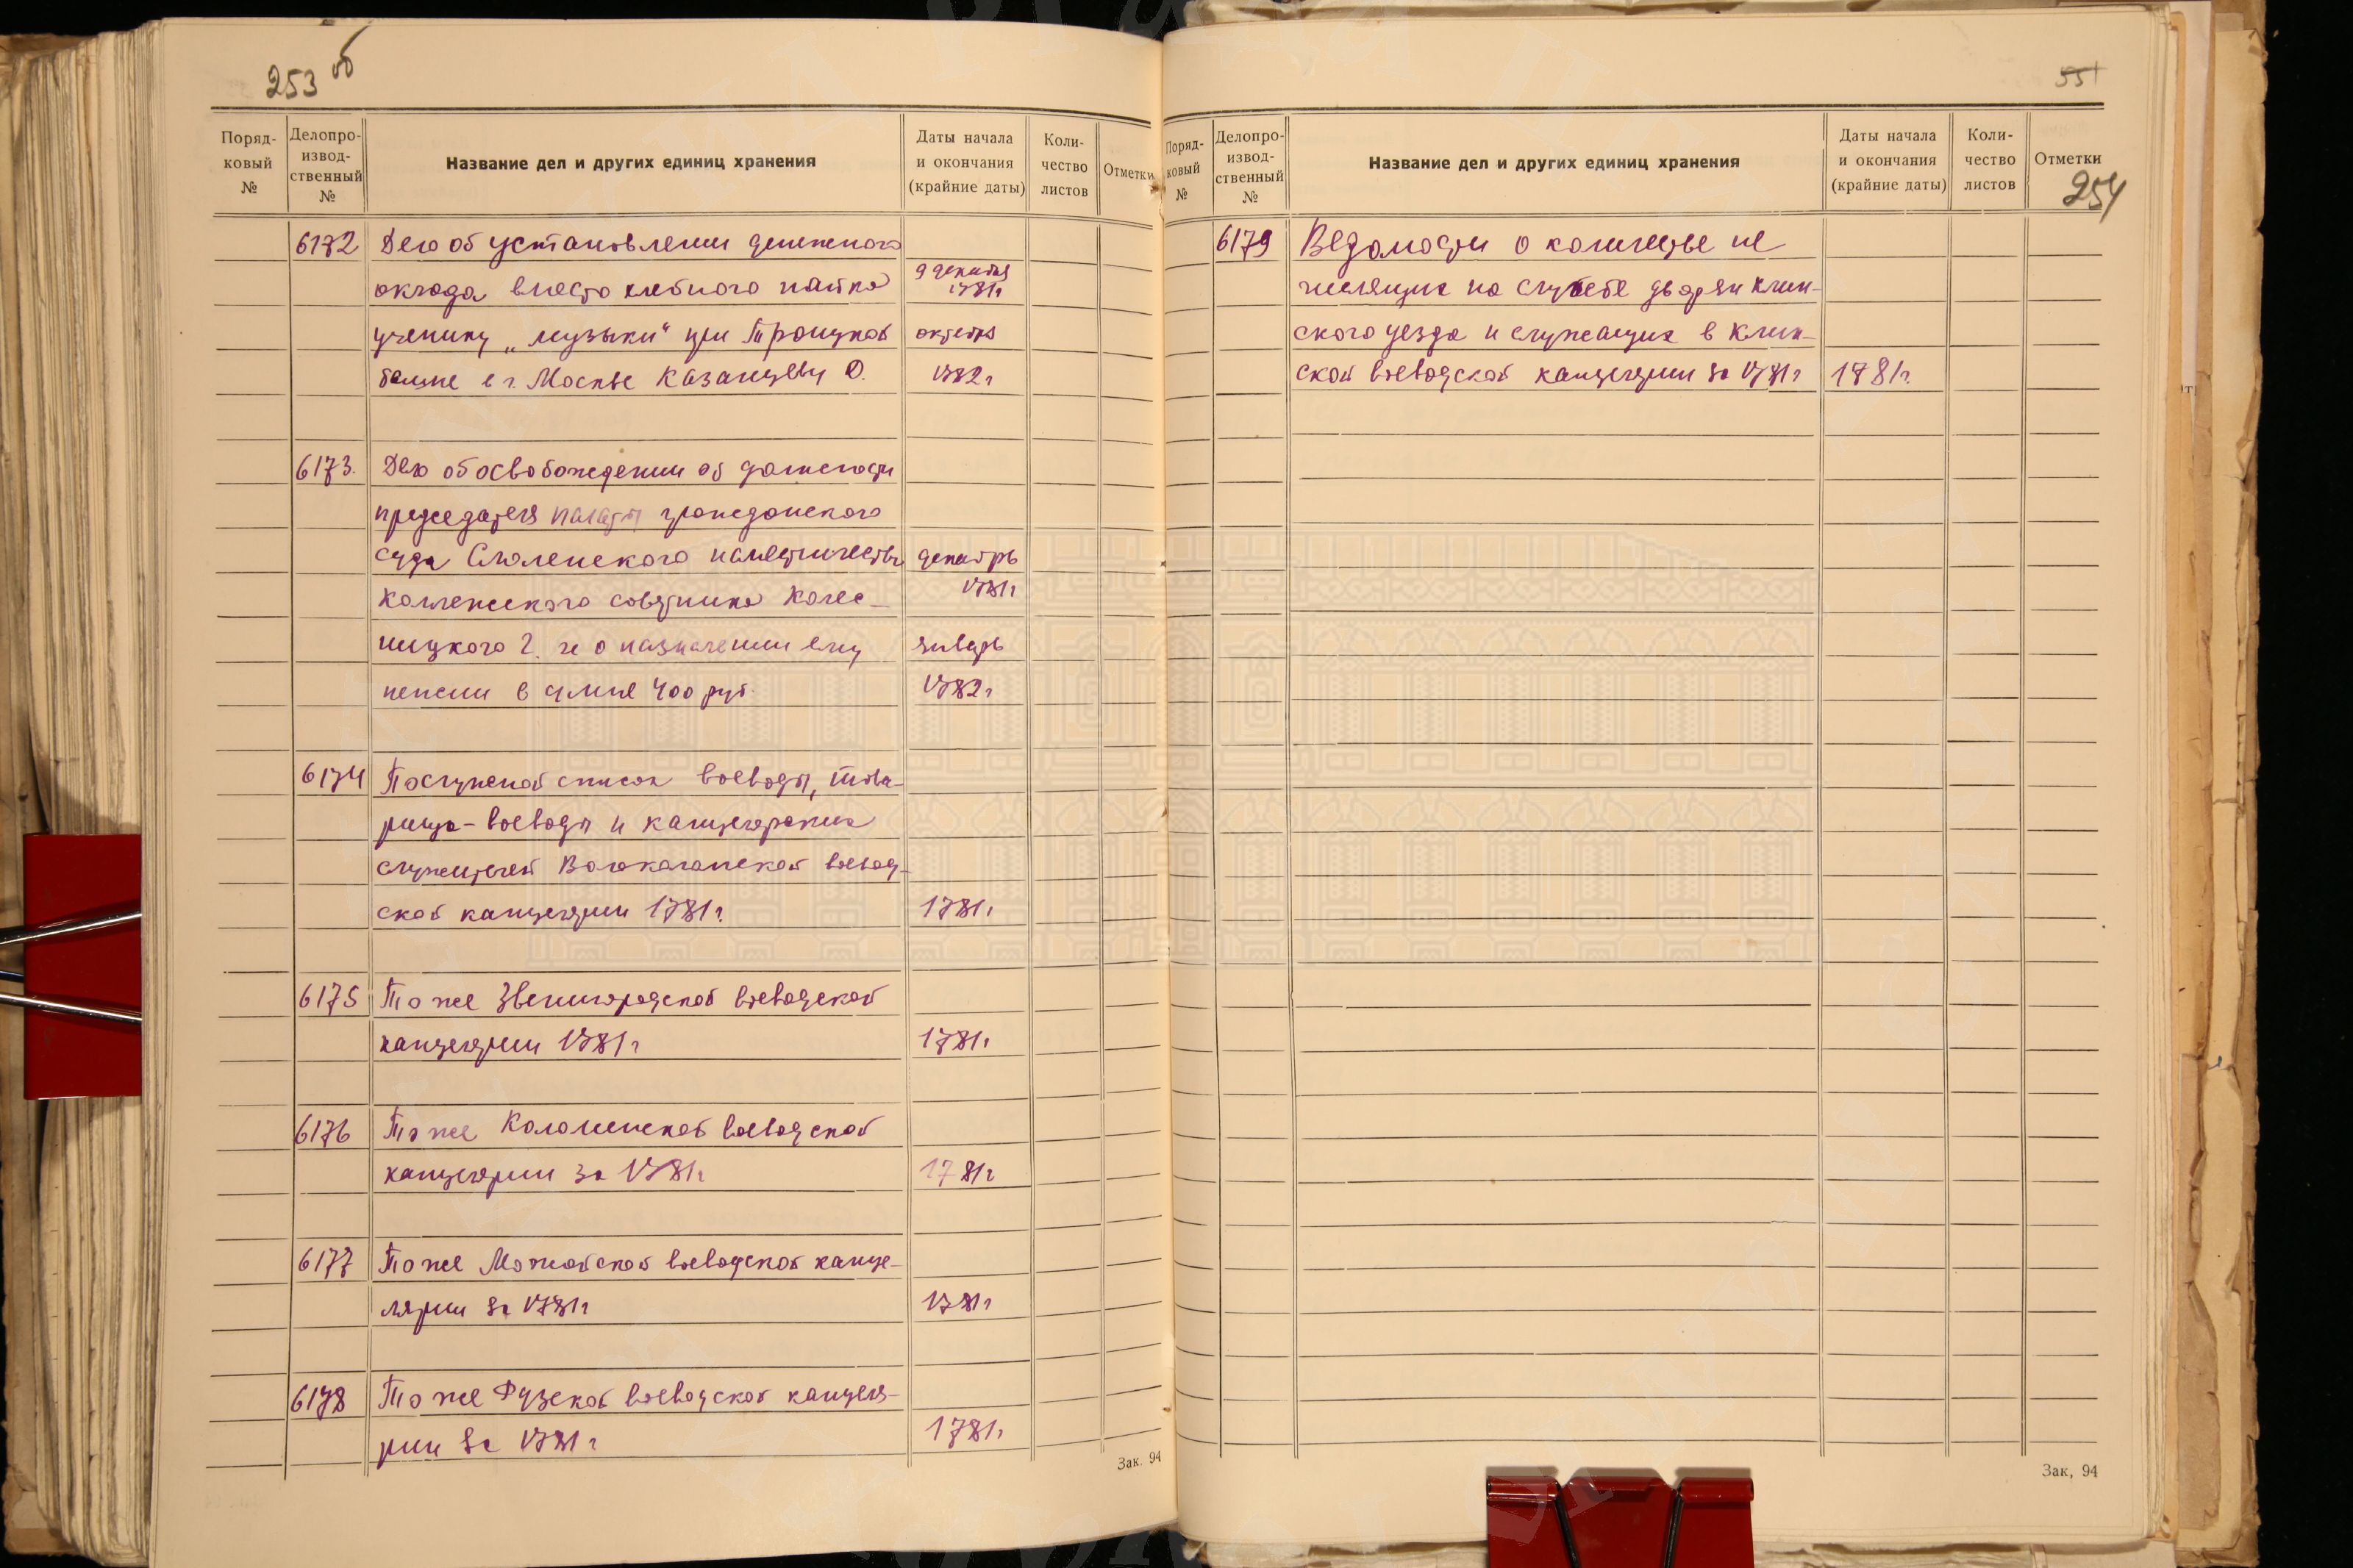 253 об
Поряд-
ковый
№
Делопро-
извод-
ственный
№
Название дел и других единиц хранения
Даты начала
и окончания
(крайние даты)
Коли-
чество
листов
Отметки
6172 Дело об установлении денежного
оклада вместо хлебного пайка 9 декабря 1781г
ученику „музыки" при Троицкой октября
башне в г. Москве Казанцеву 1782г
6173. Дело об освобождении от должности
председателя палаты гражданского
суда Смоленского наместничества декабрь
коллежского советника Колес- 1781г
ницкого Г. и о назначении ему январь
пенсии в сумме 400 руб. 1782г
6174 Послужной список воеводы, това-
рища-воеводы и канцелярских
служителей Волоколамской воевод-
ской канцелярии 1781г. 1781г
6175 То же Звенигородской воеводской
канцелярии 1781г 1781г
6176 То же Коломенской воеводской
канцелярии за 1781г 1781г
6177 То же Можайской воеводской канце-
лярии за 1781г 1781г
6178 То же Рузской воеводской канцеля-
рии за 1781г 1781г
Зак. 94
551
Поряд-
ковый
№
Делопро-
извод-
ственный
№
Название дел и других единиц хранения
Даты начала
и окончания
(крайние даты)
Коли-
чество
листов
Отметки
254
6179 Ведомости о количестве не
числящихся на службе дворян Клин-
ского уезда и служащих в Клин-
ской воеводской канцелярии за 1781г 1781г.
Зак, 94